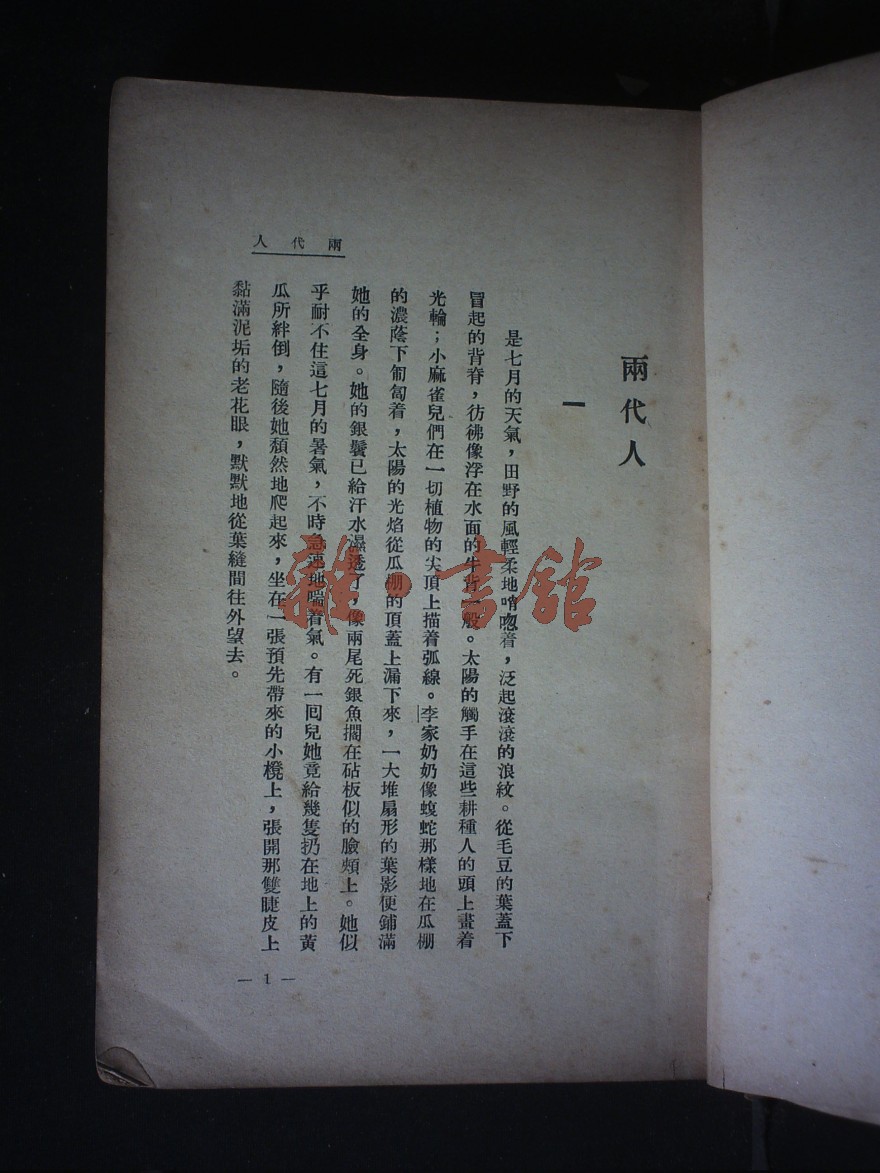 兩代人
一
是七月的天氣，田野的風輕柔地唿着，泛起滾滾的浪紋。從毛豆的葉蓋下
冒起的背脊，彷彿像浮在水面的牛背一般。太陽的觸手在這些耕種人的頭上畫着
光輪；小麻雀兒們在一切植物的尖頂上描着弧線。李家奶奶像蝮蛇那樣地在瓜棚
的濃蔭下匍匐着，太陽的光焰從瓜棚的頂蓋上漏下來，一大堆扇形的葉影便鋪滿
她的全身。她的銀鬢已給汗水濕透了，像兩尾死銀魚擱在砧板似的臉頰上。她似
乎耐不住這七月的暑氣，不時急速地喘着氣。有一囘兒她竟給幾隻扔在地上的黃
瓜所絆倒，隨後她頹然地爬起來，坐在一張預先帶來的小櫈上，張開那雙睫皮上
黏滿泥垢的老花眼，默默地從葉縫間往外望去。
兩代人
— 1 —
雜·書館